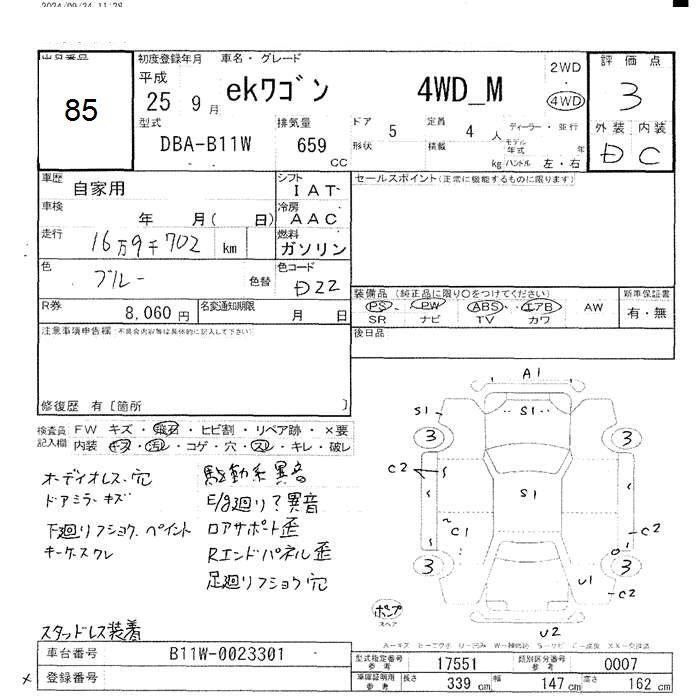 2024/09/24 11:28
出品番号
85
初度登録年月 車名・グレード
平成
25 9 月 ekワゴン 4WD_M
2WD
4WD
評価点
3
外装 内装
D C
型式 排気量 ドア 定員
DBA-B11W 659 CC 5 4 人
ディーラー・並行
形状 積載 kg モデル年式 年
ハンドル 左・右
車歴 自家用
シフト IAT
車検 年 月( 日)
冷房 AAC
走行 16万9千702 km
燃料 ガソリン
色 ブルー 色替
色コード D22
R券 8,060 円 名変通知期限 月 日
セールスポイント(正常に機能するものに限ります)
装備品(純正品に限り○をつけてください)
PS、 PW ABS、 エアB AW
SR ナビ TV カワ
新車保証書
有・無
後日品
注意事項申告欄:不具合内容等は具体的に記入して下さい
修復歴 有 [箇所 ]
検査員記入欄
FW キズ・飛石・ヒビ割・リペア跡・×要
内装・キズ・汚レ・コゲ・穴・スレ・キレ・破レ
オーディオレス、穴 駆動系異音
ドアミラーキズ E/g廻り?異音
下廻りフショク、ペイント ロアサポート歪
キーケースワレ Rエンドパネル歪
足廻りフショク穴
スタッドレス装着
A1
S1 S1
3 3
C2 S S1 S
~C1 C2
3 U1 3
C2
ポンプ
スペア
U2
車台番号 B11W-0023301
× 登録番号
型式指定番号 参考 17551 類別区分番号 参考 0007
車庫証明用 参考 長さ 339 cm 幅 147 cm 高さ 162 cm